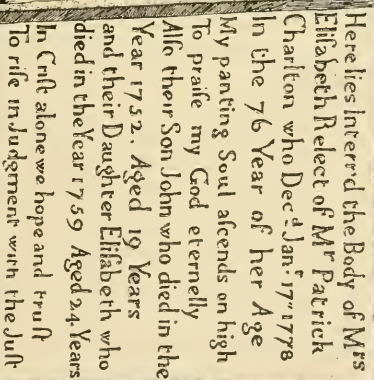 Here lies Interr'd the Body of Mrs
Eliſabeth Relect of Mr Patrick
Charlton who Decd Jan. 17th 1778
In the 76 Year of her Age
My panting Soul aſcends on high
To praiſe my God eternelly
Alſo their Son John who died in the
Year 1752. Aged 19 Years
and their Daughter Eliſabeth who
died in the Year 1759 Aged 24. Years
In Criſt alone we hope and truſt
To riſe in Judgment with the Juſt